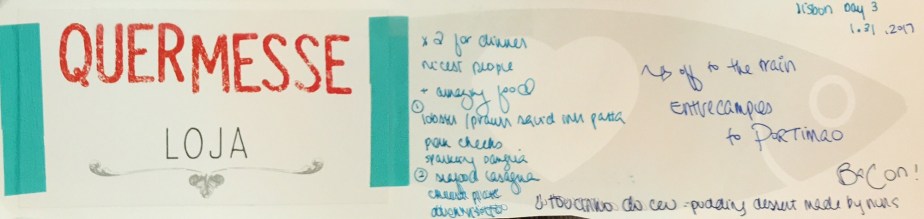 QUERMESSE
LOJA
Lisbon Day 3
1.31.2017
x 2 for dinner
nicest people
+ amazing food
① lobster / prawn squid ink pasta
pork cheeks
sparkling sangria
② seafood lasagna
cheese plate
~> off to the train
Entrecampos
to PORTIMAO
BACON!
toucinho do ceu - pudding dessert made by nuns